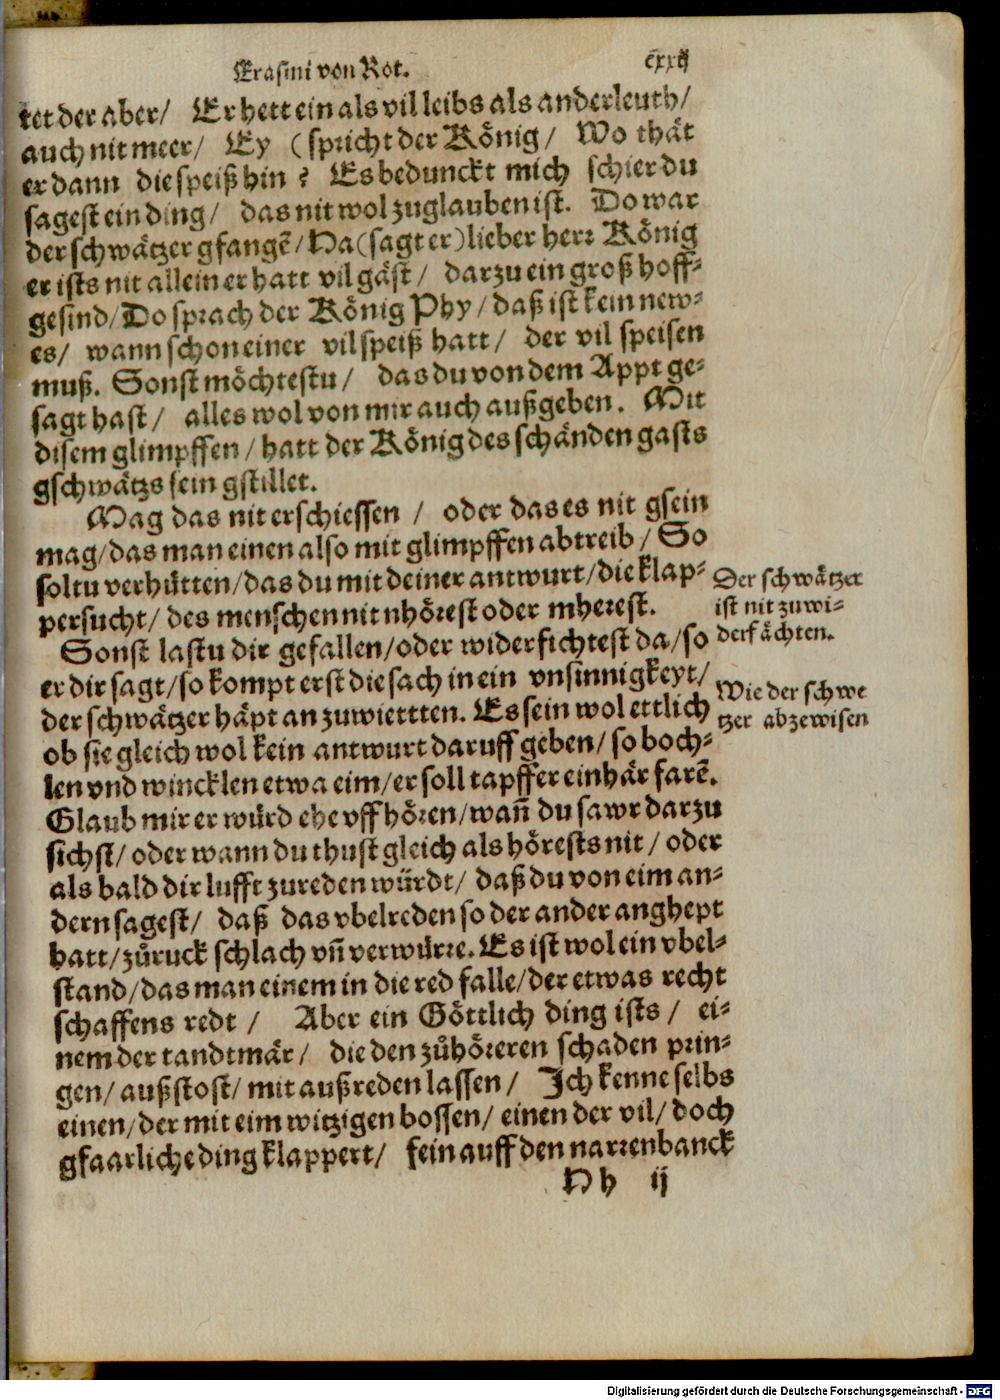 Erasmi von Rot. cxxij
tet der aber/ Er hett ein als vil leibs als ander leuth/
auch nit meer/ Ey (spricht der König/ Wo thät
er dann die speiß hin? Es bedunckt mich schier du
sagest ein ding/ das nit wol zuglauben ist. Do war
der schwätzer gfangē/ Ha (sagt er) lieber herr König
er ists nit allein er hatt vil gäst/ darzu ein groß hoff⸗
gesind/ Do sprach der König Phy/ daß ist kein new⸗
es/ wann schon einer vil speiß hatt/ der vil speisen
muß. Sonst möchtestu/ das du von dem Appt ge⸗
sagt hast/ alles wol von mir auch außgeben. Mit
disem glimpffen/ hatt der König des schänden gasts
gschwätzs fein gstillet.
Mag das nit erschiessen/ oder das es nit gsein
mag/ das man einen also mit glimpffen abtreib/ So
soltu verhütten/ das du mit deiner antwurt/ die klap⸗
persucht/ des menschen nit nhörest oder mherest.
Sonst lastu dir gefallen/ oder widerfichtest da/ so
er dir sagt/ so kompt erst die sach in ein vnsinnigkeyt/
der schwätzer häpt an zuwiettten. Es sein wol ettlich
ob sie gleich wol kein antwurt daruff geben/ so boch⸗
len vnd wincklen etwa eim/ er soll tapffer einhär farē.
Glaub mir er würd ehe vff hören/ wañ du sawr darzu
sichst/ oder wann du thust gleich als hörests nit/ oder
als bald dir lufft zureden würdt/ daß du von eim an⸗
dern sagest/ daß das vbelreden so der ander anghept
hatt/ zůruck schlach vñ verwürre. Es ist wol ein vbel⸗
stand/ das man einem in die red falle/ der etwas recht
schaffens redt/ Aber ein Göttlich ding ists/ ei⸗
nem der tandtmär/ die den zůhöreren schaden prin⸗
gen/ außstost/ mit außreden lassen/ Ich kenne selbs
einen/ der mit eim witzigen bossen/ einen der vil/ doch
gfaarliche ding klappert/ fein auff den narrenbanck
Hh ij
Der schwätzer
ist nit zuwi⸗
derfächten.
Wie der schwe
tzer abzewisen
Digitalisierung gefördert durch die Deutsche Forschungsgemeinschaft - DFG